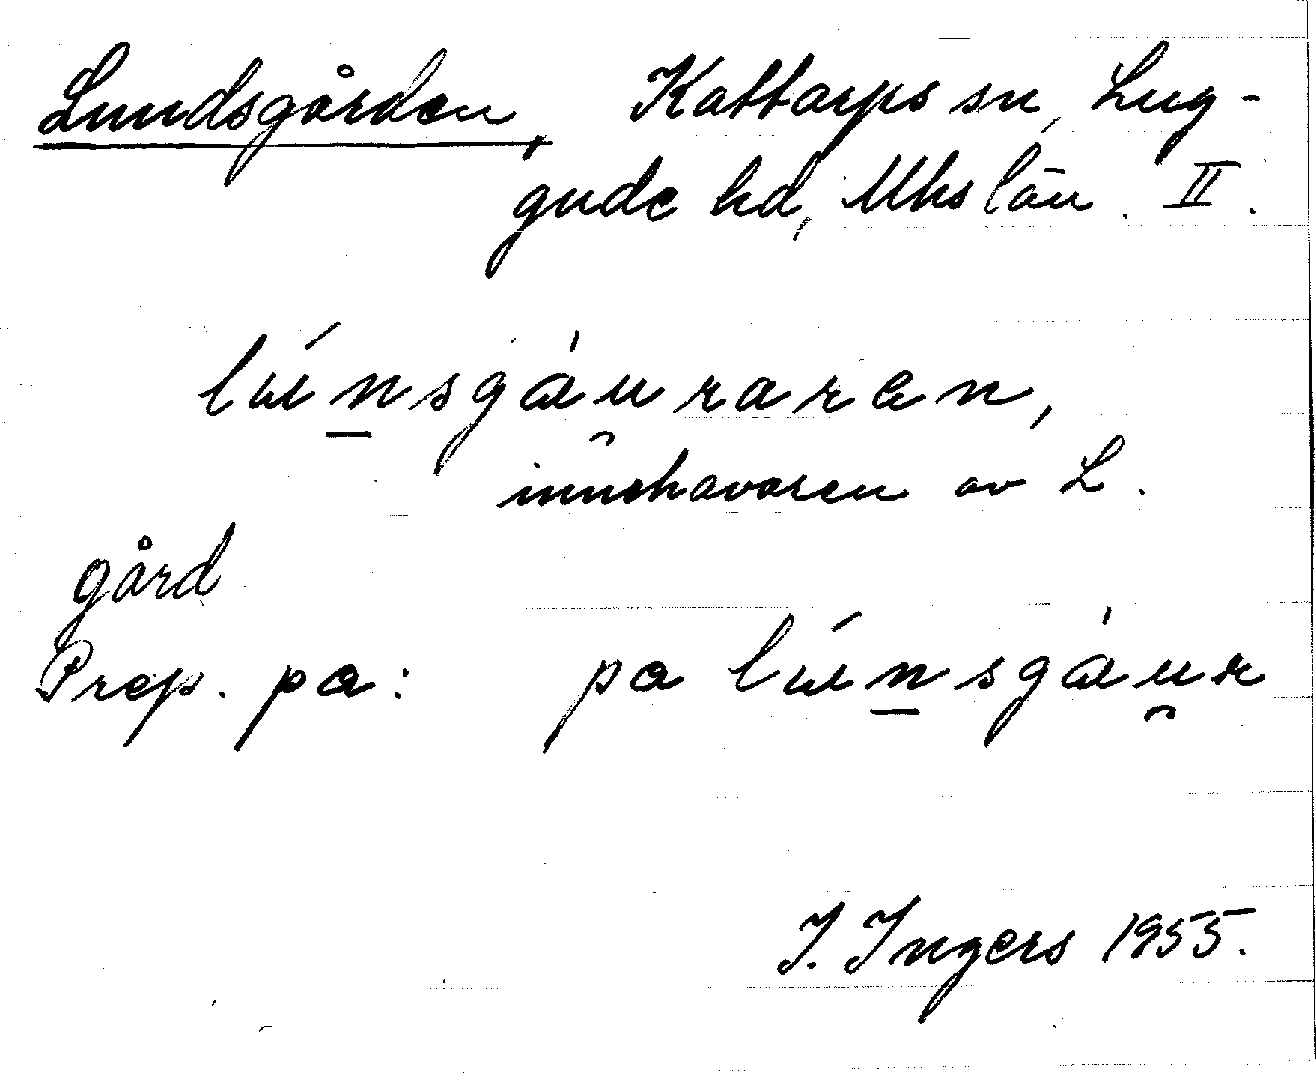 Lundsgården, Kattarps sn, Lug-
gude hd, Mhs län. II.
lúnsgáuraren,
innehavaren av L.
gård
Prep. pa: pa lúnsgáur
I. Ingers 1955.